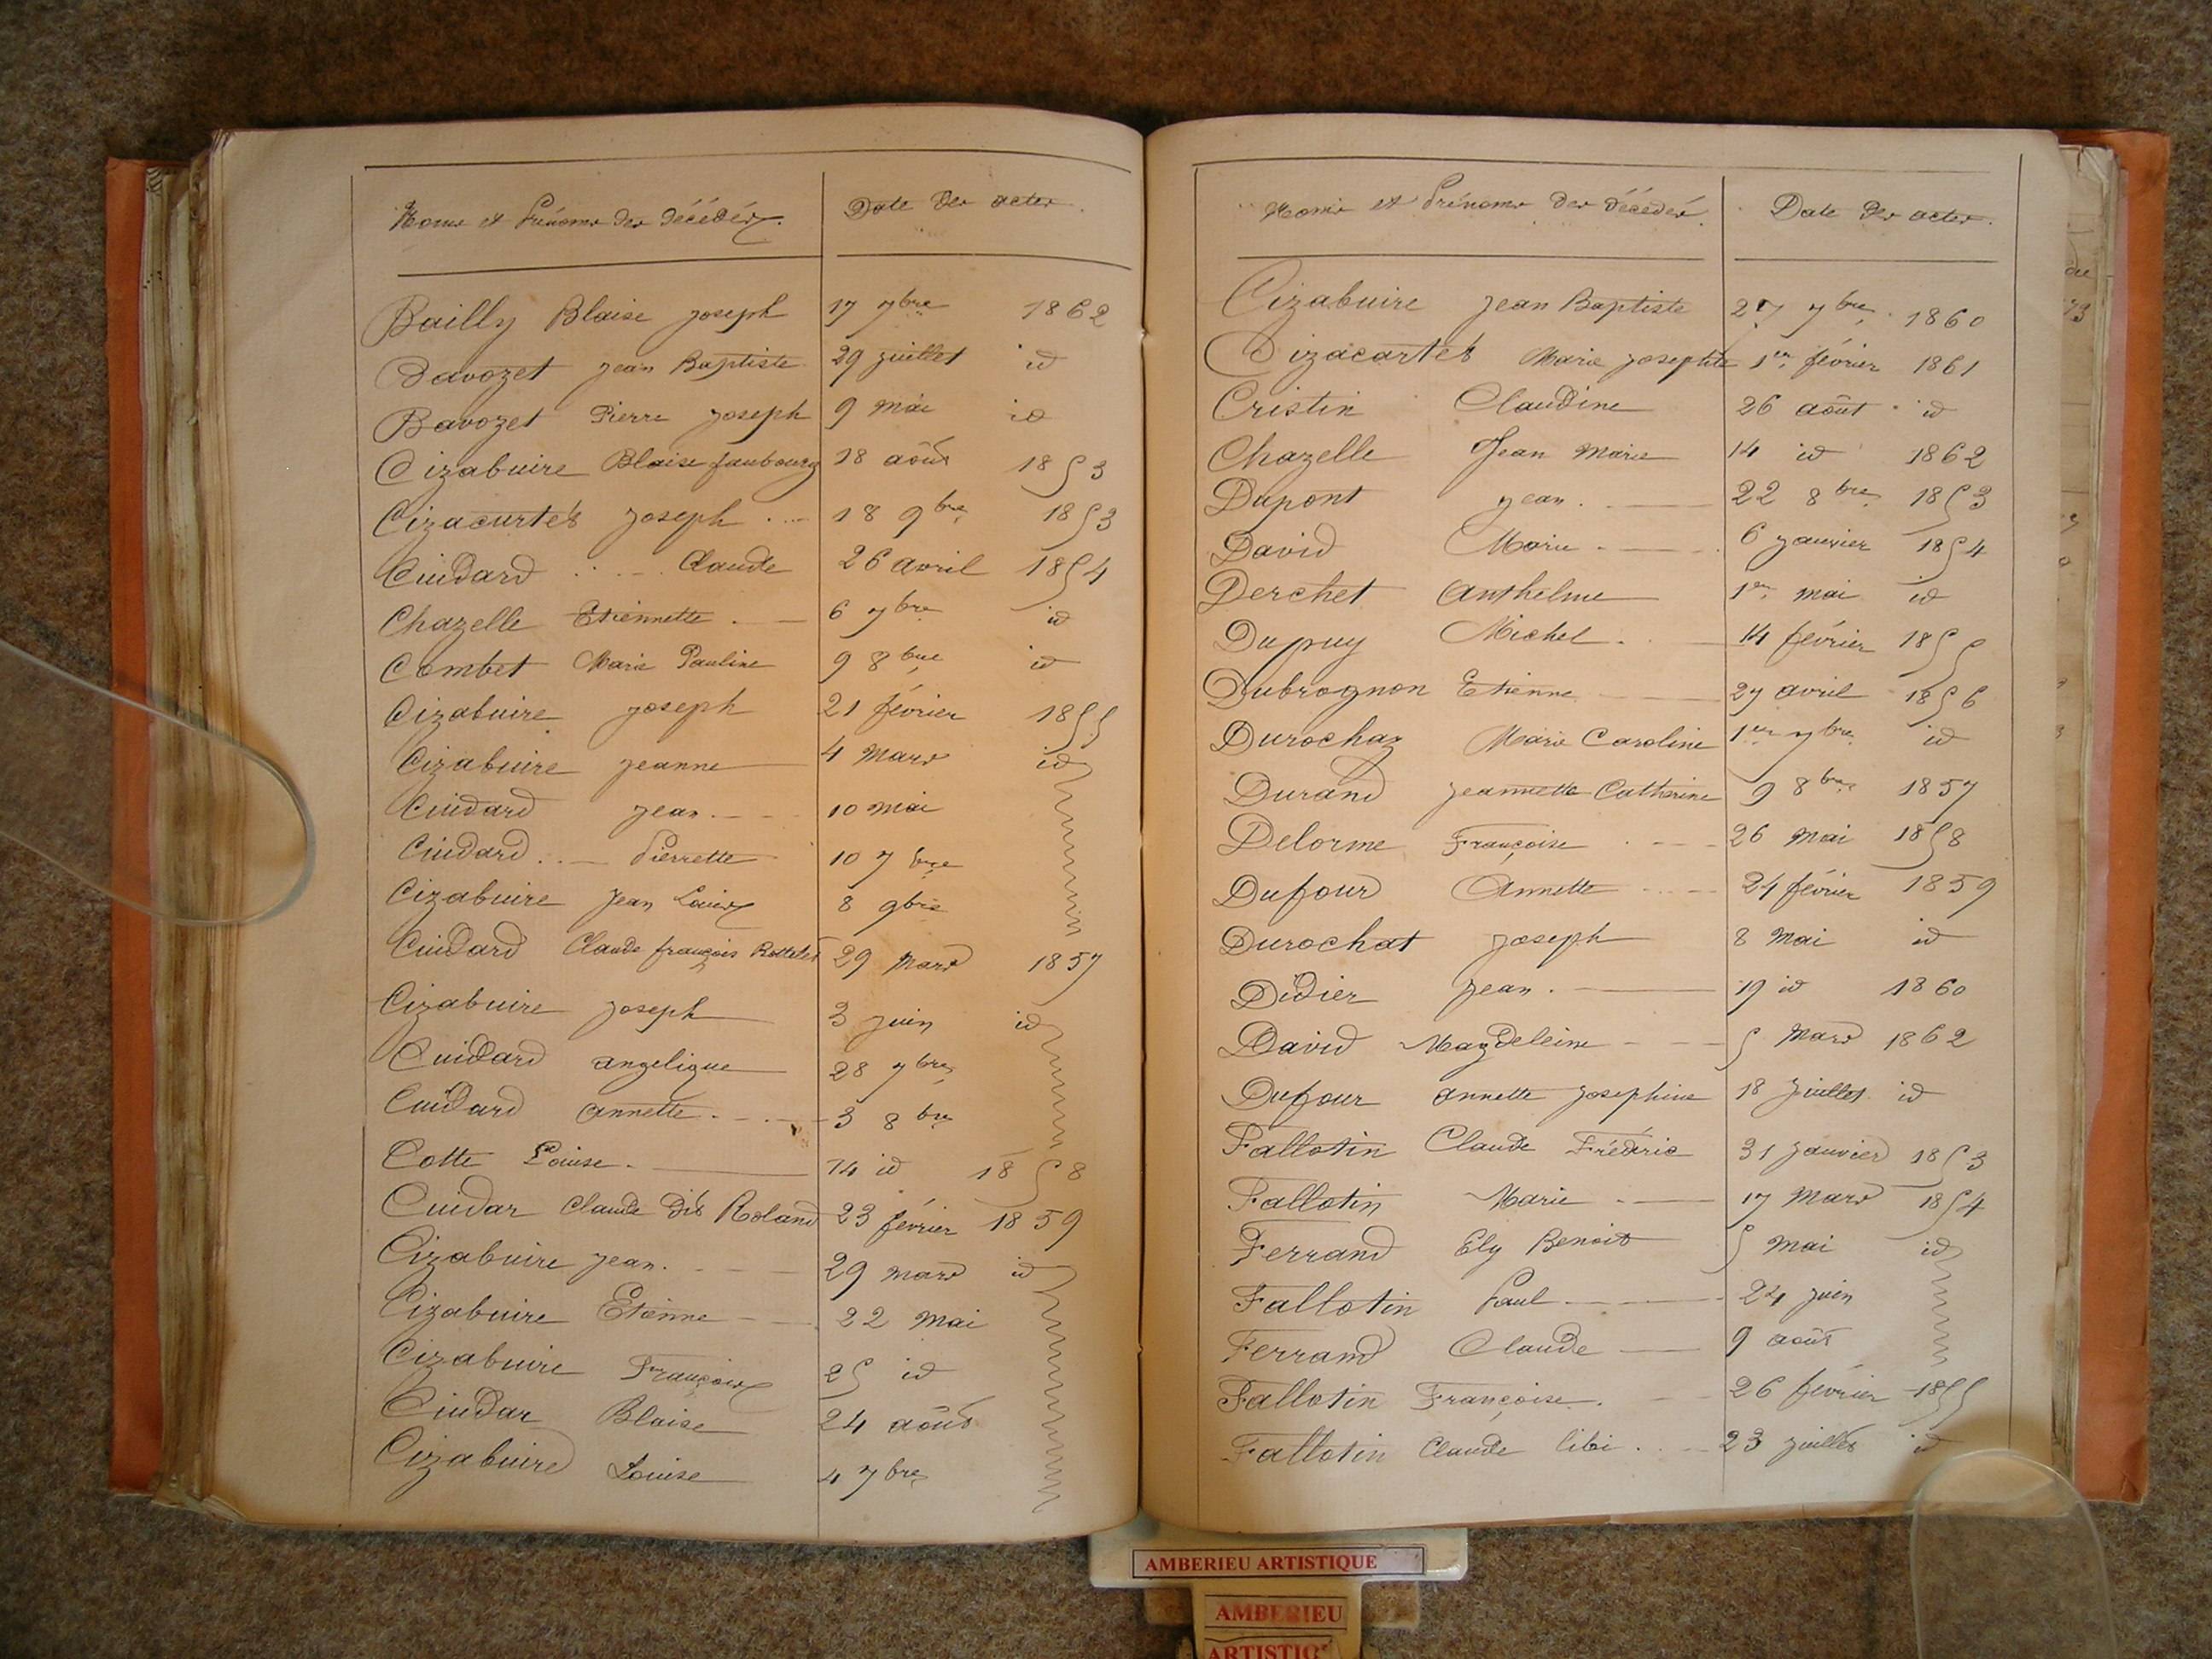 Noms et Prénoms des décédés. Date des actes.
Bailly Blaise Joseph 17 7bre 1862
Bavozet Jean Baptiste 29 juillet id
Bavozet Pierre Joseph 9 mai id
Cizabuire Blaise faubourg 18 août 1853
Cizacurtet Joseph 18 9bre 1853
Cuidard Claude 26 avril 1854
Chazelle Etiennette 6 7bre id
Combet Marie Pauline 9 8bre id
Cizabuire Joseph 21 février 1855
Cizabuire Jeanne 4 mars id
Cuidard Jean 10 mai
Cuidard Pierrette 10 7bre
Cizabuire Jean Louis 8 9bre
Cuidard Claude françois 29 Mars 1857
Cizabuire Joseph 3 juin id
Cuidard angelique 28 7bre
Cuidard annette 3 8bre
Cotte Louise 14 id 1858
Cuidar Claude dit Roland 23 février 1859
Cizabuire Jean 29 mars id
Cizabuire Etienne 22 Mai
Cizabuire François 25 id
Cuidar Blaise 24 août
Cizabuire Louise 4 7bre
Noms et Prénoms des décédés. Date des actes.
Cizabuire Jean Baptiste 27 7bre 1860
Cizacartet Marie Josephte 1er février 1861
Cristin Claudine 26 août id
Chazelle Jean Marie 14 id 1862
Dupont Jean 22 8bre 1853
David Marie 6 Janvier 1854
Derchet Anthelme 1er mai id
Dupuy Michel 14 février 1855
Dubrognon Etienne 27 avril 1856
Durochaz Marie Caroline 1er 7bre id
Durand Jeannette Catherine 9 8bre 1857
Delorme Françoise 26 Mai 1858
Dufour Annette 24 février 1859
Durochat Joseph 8 Mai id
Didier Jean 19 id 1860
David Magdeleine 5 Mars 1862
Dufour annette Josephine 18 Juillet id
Fallotin Claude Frédéric 31 Janvier 1853
Fallotin Marie 17 Mars 1854
Ferrand Ely Benoit 5 Mai id
Fallotin Paul 24 juin
Ferrand Claude 9 août
Fallotin Françoise 26 février 1855
Fallotin Claude 23 juillet id
AMBERIEU ARTISTIQUE
AMBERIEU